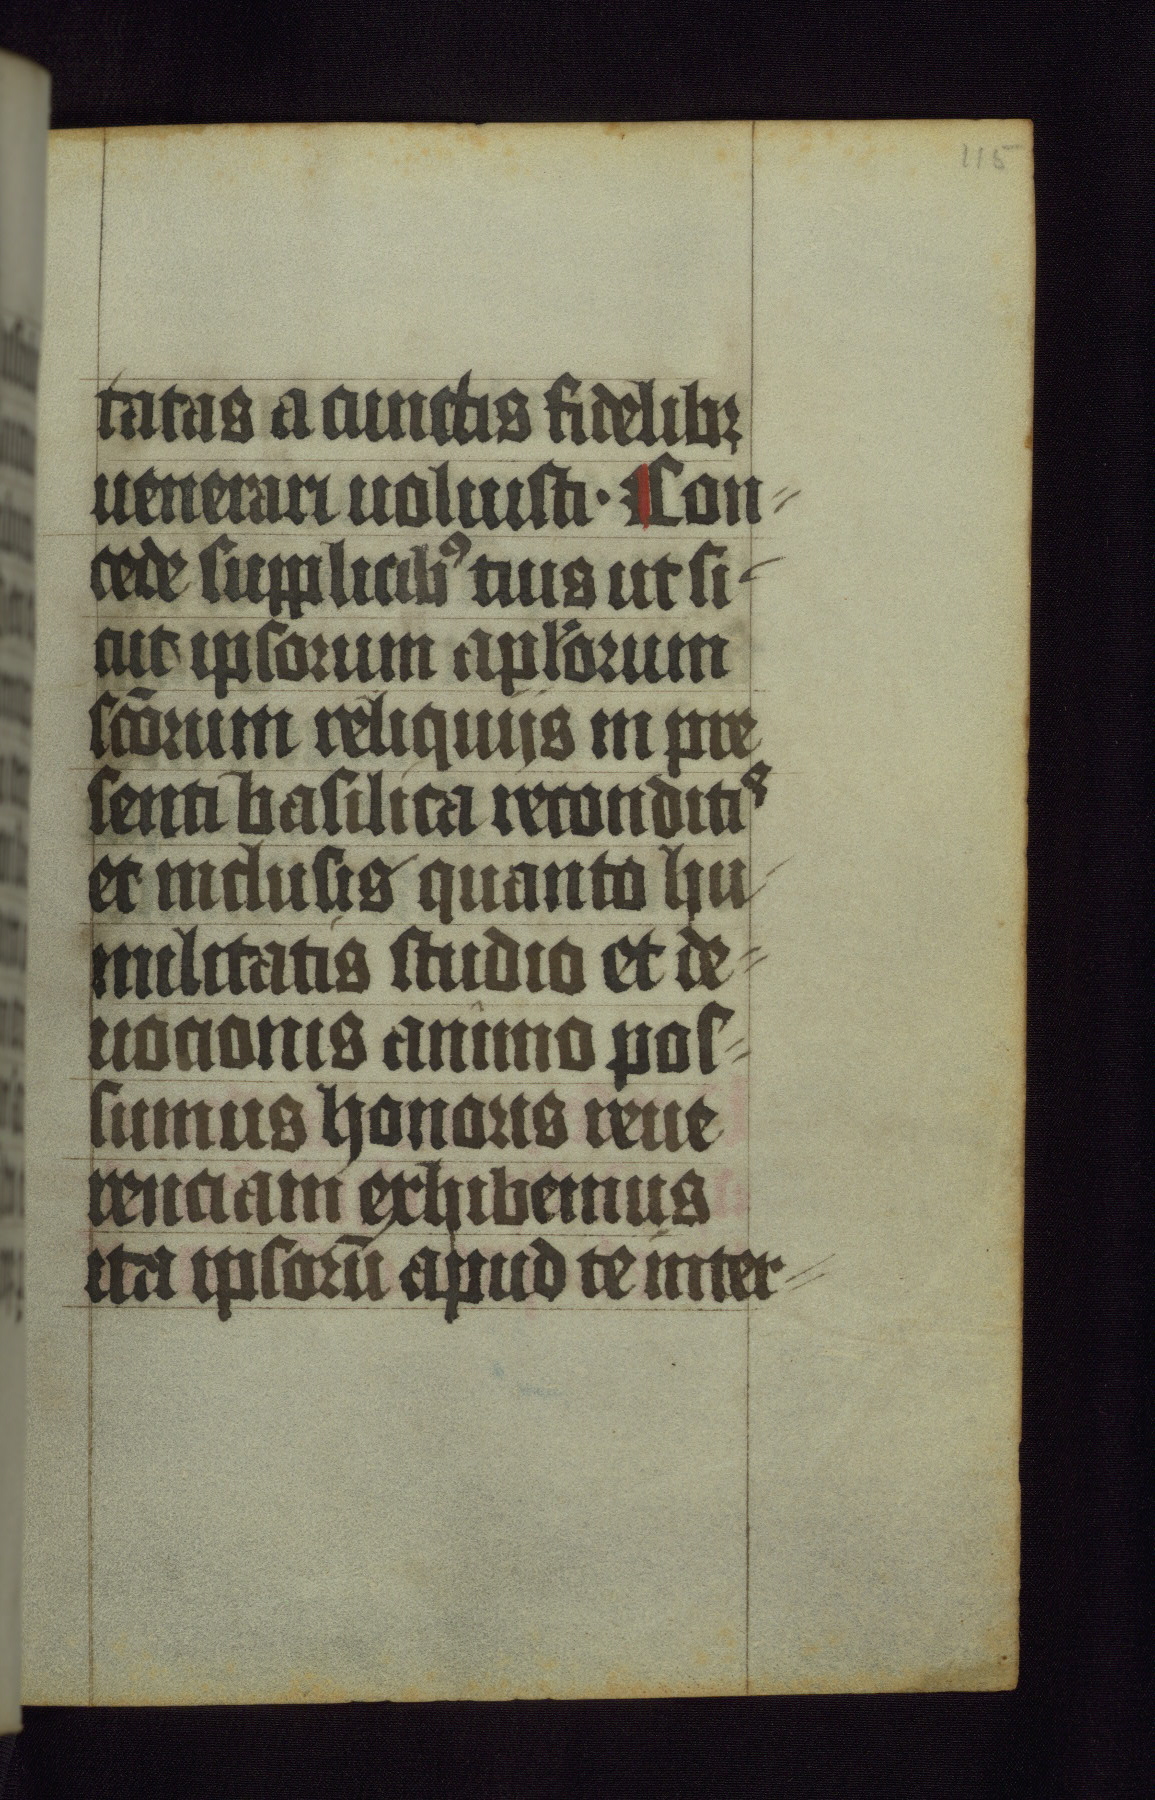 115
tatas a cunctis fidelibꝫ
uenerari uoluisti · Con=
cede supplicibꝰ tuis ut si-
cut ipsorum apl'orum
sc̄orum reliquijs in pre
senti basilica reconditis
et inclusis quanto hu-
militatis studio et de=
uocionis animo pos=
sumus honoris reue
renciam exhibemus
ita ipsorū apud te inter=